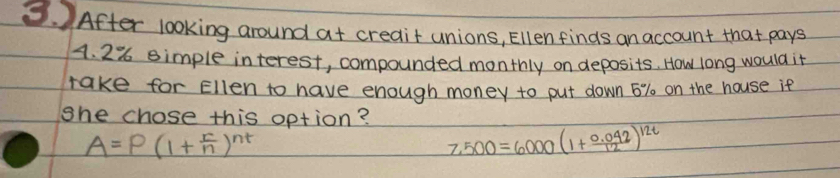 3.) After looking around at credit unions, Ellen finds an account that pays
4.2% simple interest, compounded monthly on deposits. How long would it
take for Ellen to have enough money to put down 5% on the house if
she chose this option?
A = P (1 + r/n)^nt 7,500 = 6000 (1 + 0.042/12)^12t